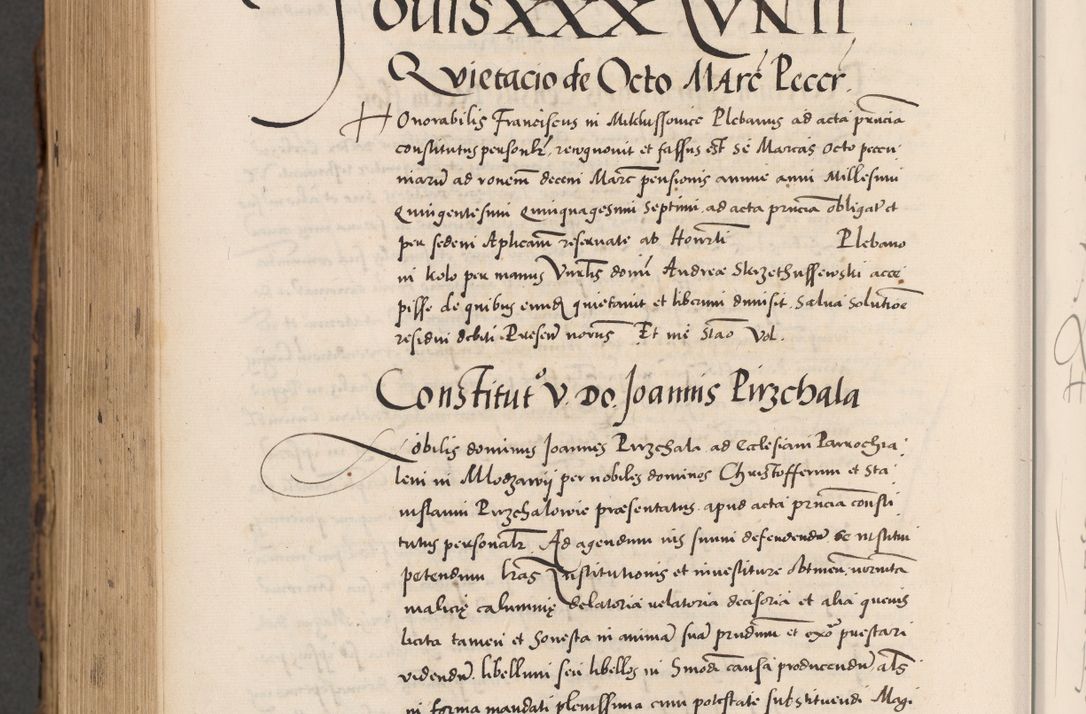 Jouis XXX
Qvietacio de Octo Marc̄ Peccr̄.
Honorabilis Franciscus in Miklussovice Plebanus ad acta pn̄cia
constitutus personlr̄, recognouit et fassus est Se Marcas Octo peccu
niarū ad ronem̄ decem Marc̄ pensionis annue anni Millesimi
Quingentesimi Quinquagesimi Septimi, ad acta pn̄cia obligat et
per sedem Aplicam̄ reseruate ab Plebano
in kolo per manus domī Andreæ Skrzethussewski acce
pisse de quibus eundē quietauit et liberum dimisit. Salua Solutioē
residui debiti. Presen̄ Et me Vol.
Constitut° V. Do. Joannis Pirzchala
Nobilis dominus Joannes Pirzchala ad Ecclesiam Parrochia
lem in per nobiles dominos Christofferum et Sta
nislaum Pirzchalowie præsentatus apud acta pn̄cia consti
tutus personalr̄. Ad agendum defendendū se institui
petendum lrās Institutionis et inuestiture
malicię calumnię delatoria relatoria decisoria et alia queuis
licita tamen et Honesta in animā suā prestari
videndū. libellum seu libellos in causa producendū
in forma mandati plenissima cum potestate substituendi Magi